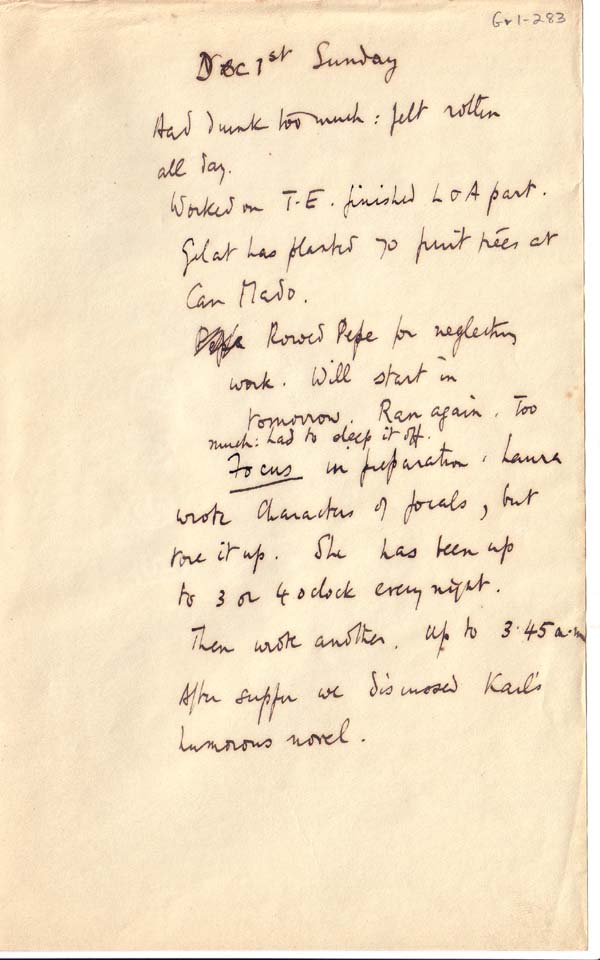 Gr1-283
Dec 1st Sunday
Had drunk too much: felt rotten
all day.
Worked on T-E. finished L & A part.
Gelat has planted 70 fruit trees at
Can Mado.
Rowed Pepe for neglecting
work. Will start in
tomorrow. Ran again. Too
much: had to sleep it off.
Focus in preparation. Laura
wrote Characters of focals, but
tore it up. She has been up
to 3 or 4 oclock every night.
Then wrote another. Up to 3.45 a.m
After supper we discussed Karl's
humorous novel.